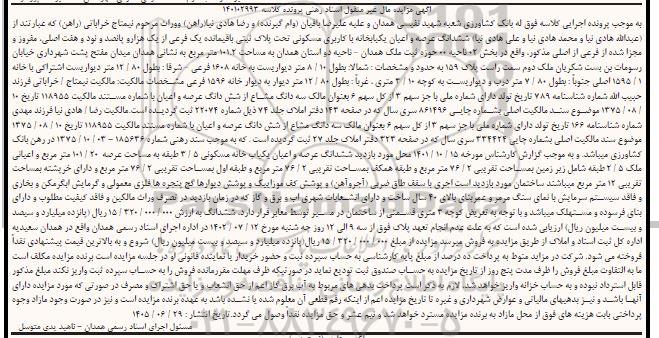 آگهی مزایده مال غیر منقول اسناد رهنی پرونده کلاسه ۱۴۰۱۰۲۹۹۳
به موجب پرونده اجرایی کلاسه فوق له بانک کشاورزی شعبه شهید نفیسی همدان و علیه علیرضا باقیان (وام گیرنده) و رضا هادی نیا(راهن) و وراث مرحوم نیمتاج خراباتی (راهن) که عبارتند از
(عبدالله هادی نیا و محمد هادی نیا و علی هادی نیا) ششدانگ عرصه و اعیان یکبابخانه با کاربری مسکونی تحت پلاک ثبتی باقیمانده یک فرعی از یک هزار و پانصد و نود و هفت اصلی، مفروز و
مجزا شده از فرعی از اصلی مذکور، واقع در بخش ۰۲ ناحیه ۰۰ حوزه ثبت ملک همدان - ناحیه دو استان همدان به مساحت ۱۰۱.۲ متر مربع به نشانی همدان میدان مفتح پشت شهرداری خیابان
رسومات بن بست شکریان ملک دوم سمت راست پلاک ۱۵۹ به حدود و مشخصات : شمالا: بطول ۱۰ / ۸ متر دیواریست به خانه ۱۶۰۸ فرعی - شرقا : بطول ۸۰ / ۱۲ متر دیواریست اشتراکی با خانه
۱ / ۱۵۹۵ اصلی جنوبا : بطول ۸۰ / ۷ متر درب و دیواریست به کوچه ۱۰ / ۳ متری . غربا : بطول ۸۰ / ۱۲ متر دیوار به دیوار خانه ۱۵۹۶ فرعی مشخصات مالکیت: مالکیت نیمتاج / خراباتی فرزند
حبیب الله شماره شناسنامه ۷۸۹ تاریخ تولد دارای شماره ملی با جز سهم ۳ از کل سهم ۶ بعنوان مالک سه دانگ مشاع از شش دانگ عرصه و اعیان با شماره مستند مالکیت ۱۱۸۹۵۵ تاریخ ۱۰
/ ۰۸ / ۱۳۷۵ موضوع سند مالکیت اصلی بشماره چاپی ۸۶۱۴۹۶ سری سال که در صفحه ۱۴۳ دفتر املاک جلد ۷۴ ذیل شماره ۲۲۰۷۴ ثبت گردیده است مالکیت رضا / هادی نیا فرزند مهدی
شماره شناسنامه ۱۶۶ تاریخ تولد دارای شماره ملی با جز سهم ۳ از کل سهم ۶ بعنوان مالک سه دانگ مشاع از شش دانگ عرصه و اعیان با شماره مستند مالکیت ۱۱۸۹۵۵ تاریخ ۱۰ / ۰۸ / ۱۳۷۵
موضوع سند مالکیت اصلی بشماره چاپی ۳۳۴۴۲۴ سری سال که در صفحه ۳۲۳ دفتر املاک جلد ۲۷ ثبت گردیده است . که به موجب سند رهنی شماره ۱۸۵۶۳۶ - ۰۳ / ۱۰ / ۱۳۷۵ در رهن بانک
کشاورزی میباشد. و به موجب گزارش کارشناس مورخه ۱۵ / ۱۰ / ۱۴۰۱ محل مورد بازدید ششدانگ عرصه و اعیان یکباب خانه مسکونی ۵ / ۳ طبقه به مساحت عرصه ۲۰ / ۱۰۱ متر مربع و اعیانی
ملک ۵ / ۲ طبقه شامل زیر زمین بمساحت تقریبی ۲ / ۷۶ متر مربع و طبقه همکف بمساحت تقریبی ۲ / ۷۶ متر مربع و طبقه اول بمساحت تقریبی ۲ / ۷۶ متر مربع و دارای خرپشته بمساحت
تقریبی ۱۲ متر مربع میباشد ساختمان مورد بازدید است اجری با سقف طاق ضربی (آجر و آهن) و پوشش کف موزاییک و پوشش دیوارها گچ پنجره ها فلزی معمولی و گرمایش ابگرمکن و بخاری
و فاقد سیستم سرمایش با نمای سنگ مرمر و عمر بنای بالای ۴۰ سال ساخت و دارای انشعابات شهری اب و برق و گاز که در زمان بازدید در تصرف وراث مالکین و فاقد کیفیت مطلوب و دارای
بنای فرسوده و مستهلک میباشد و با توجه به تعریض کوچه ۳ متری قسمتی از ساختمان در مسیر توسط معابر قرار دارد. ششدانگ به ارزش ۰۰۰/ ۰۰۰/ ۳۲۰/ ۱۵ ریال (پانزده میلیارد و سیصد
و بیست میلیون ریال) ارزیابی شده است که به علت عدم انجام تعهد پلاک فوق از سه ۹ الی ۱۲ روز چه شنبه مورخ ۱۲ / ۰۷ / ۱۴۰۲ در اداره اجرای اسناد رسمی همدان واقع در همدان سعیدیه
اداره کل ثبت اسناد و املاک از طریق مزایده به فروش میرسد. مزایده از مبلغ ۰۰۰/ ۰۰۰/ ۳۲۰/ ۱۵ ریال (پانزده میلیارد و سیصد و بیست میلیون ریال) شروع و به بالاترین قیمت پیشنهادی نقداً
فروخته می شود. شرکت در مزاید منوط به پرداخت ده درصد از مبلغ پایه کارشناسی به حساب سپرده ثبت و حضور خریدار یا نماینده قانونی او در جلسه مزایده است برنده مزایده مکلف است
ما به التفاوت مبلغ فروش را ظرف مدت پنج روز از تاریخ مزایده به حساب صندوق ثبت تودیع نماید در صورتیکه ظرف مهلت مقرر مانده فروش را به حساب سپرده ثبت واریز نکند مبلغ مذکور
قابل استرداد نبوده و به حساب خزانه واریز خواهد شد. لازم به ذکر است پرداخت بدهی های مربوط به آب برق گاز اعم از حق انشعاب و یا حق اشتراک و مصرف در صورتی که مورد مزایده دارای
آنها باشند و نیز بدهیهای مالیاتی و عوارض شهرداری و غیره تا تاریخ مزایده اعم از اینکه رقم قطعی آن معلوم شده یا نشده باشد به عهده برنده مزایده است و نیز در صورت وجود مازاد وجوه
پرداختی بابت هزینه های فوق از محل مازاد به برنده مزایده مسترد خواهد شد و نیم عشر و حق مزایده نقدا وصول می گردد. تاریخ انتشار : ۲۹ / ۰۶ / ۱۴۰۵
مسئول اجرای اسناد رسمی همدان - ناهید یدی متوسل